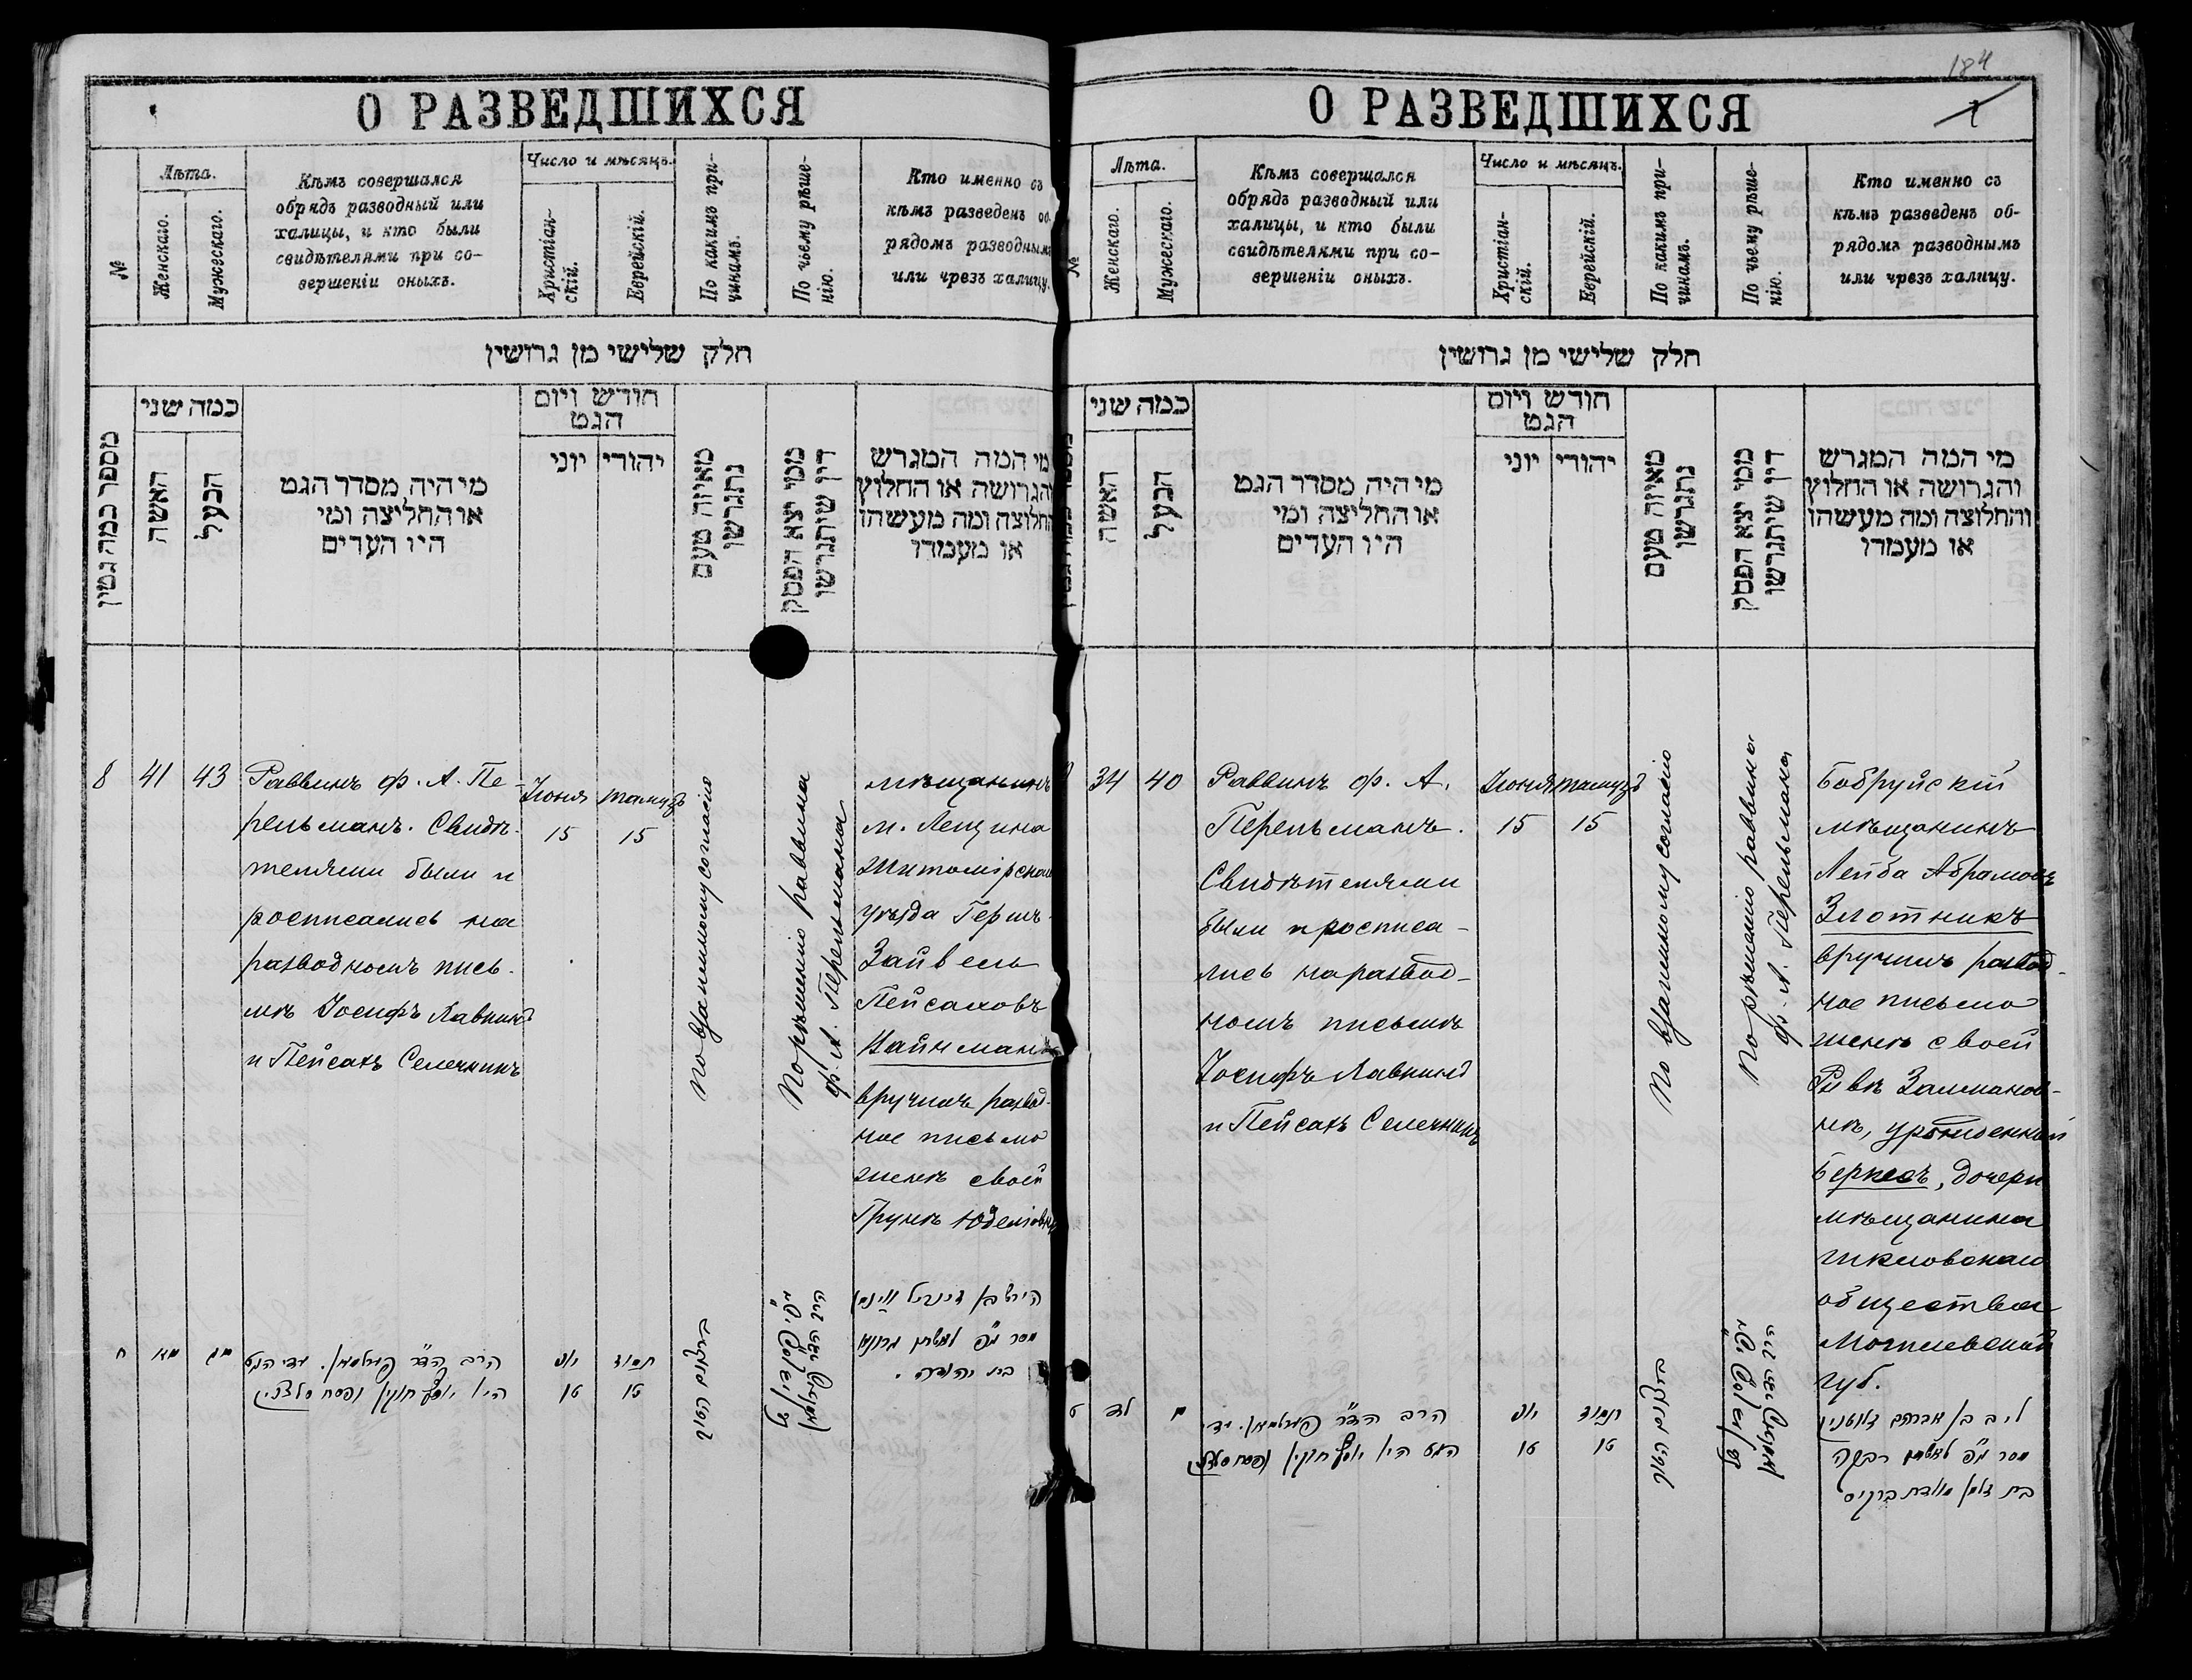 О РАЗВЕДШИХСЯ
№
Лѣта.
Женскаго.
Мужескаго.
Кѣмъ совершался
обрядъ разводный или
халицы, и кто были
свидѣтелями при со-
вершеніи оныхъ.
Число и мѣсяцъ.
Христіан-
скій.
Еврейскій.
По какимъ при-
чинамъ.
По чьему рѣше-
нію.
Кто именно съ
кѣмъ разведенъ об-
рядомъ разводнымъ
или чрезъ халицу.
חלק שלישי מן גרושין
מספר כמה גטין
כמה שני
האשה
הבעל
מי היה מסדר הגט
או החליצה ומי
היו העדים
חודש ויום
הגט
יוני
יהודי
מאיזה טעם
נתגרשו
ממי יצא הפסק
דין שיתגרשו
מי המה המגרש
והגרושה או החלוץ
והחלוצה ומה מעשהו
או מעמדו
8
41
43
Раввинъ ф. А. Пе-
рельманъ. Свидѣ-
телями были и
росписались на
разводномъ пись-
мѣ Іосифъ Хавкинъ
и Пейсахъ Селечникъ
Іюня
15
тамузъ
15
По взаимному согласію
По рѣшенію раввина
ф. А. Перельмана
мѣщанинъ
м. Лещина
Житомірскаго
уѣзда Гершъ-
Зайвель
Пейсаховъ
Вайнманъ
вручилъ развод-
ное письмо
женѣ своей
Грунѣ Юделіовнѣ
ח
מא
מג
הרב הד״ר פערלמאן. עדי הגט
היו יוסף חוקין ופסח סלצקין
יוני
טו
תמוז
טו
מסר ג״פ לאשתו גרונא
בת יהודה.
184
О РАЗВЕДШИХСЯ
№
Лѣта.
Женскаго.
Мужескаго.
Кѣмъ совершался
обрядъ разводный или
халицы, и кто были
свидѣтелями при со-
вершеніи оныхъ.
Число и мѣсяцъ.
Христіан-
скій.
Еврейскій.
По какимъ при-
чинамъ.
По чьему рѣше-
нію.
Кто именно съ
кѣмъ разведенъ об-
рядомъ разводнымъ
или чрезъ халицу.
חלק שלישי מן גרושין
כמה שני
האשה
הבעל
מי היה מסדר הגט
או החליצה ומי
היו העדים
חודש ויום
הגט
יוני
יהודי
מאיזה טעם
נתגרשו
ממי יצא הפסק
דין שיתגרשו
מי המה המגרש
והגרושה או החלוץ
והחלוצה ומה מעשהו
או מעמדו
34
40
Раввинъ ф. А.
Перельманъ.
Свидѣтелями
были и росписа-
лись на развод-
номъ письмѣ
Іосифъ Хавкинъ
и Пейсахъ Селечникъ
Іюня
15
тамузъ
15
По взаимному согласію
По рѣшенію раввина
ф. А. Перельмана
Бобруйскій
мѣщанинъ
Лейба Абрамовъ
Злотникъ
вручилъ развод-
ное письмо
женѣ своей
Ривѣ Залманов-
нѣ, урожденной
Беркесъ, дочери
мѣщанина
Шкловскаго
общества
Могилевской
губ.
ט
לד
מ
הרב הד״ר פערלמאן. עדי
הגט היו יוסף חוקין ופסח סלצקין
יוני
טו
תמוז
טו
ליב בן אברהם זלוטניק
מסר ג״פ לאשתו רבקה
בת זלמן מולדת ברקיס